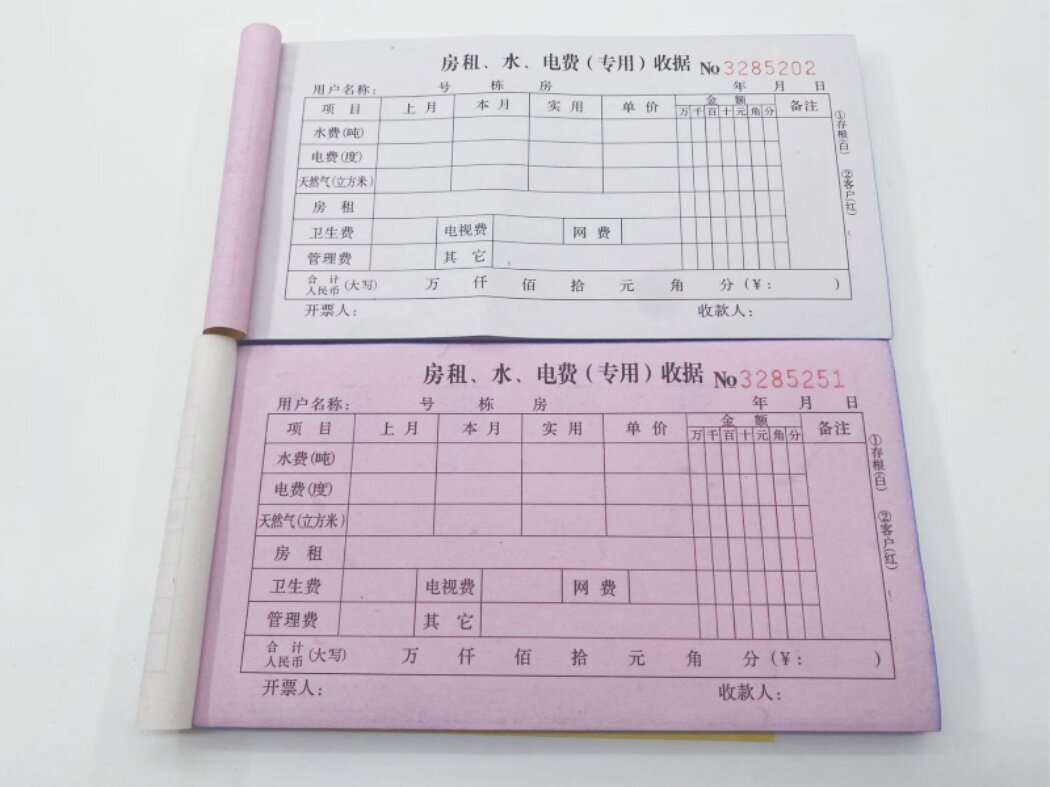 房租、水、电费(专用)收据 No 3285202
用户名称: 号 栋 房 年 月 日
项 目 上 月 本 月 实 用 单 价 金 额 备注
万 千 百 十 元 角 分
水费(吨)
电费(度)
天然气(立方米)
房 租
卫生费 电视费 网 费
管理费 其 它
合 计
人民币 (大写) 万 仟 佰 拾 元 角 分(¥: )
开票人: 收款人:
①存根(白) ②客户(红)
房租、水、电费(专用)收据 No 3285251
用户名称: 号 栋 房 年 月 日
项 目 上 月 本 月 实 用 单 价 金 额 备注
万 千 百 十 元 角 分
水费(吨)
电费(度)
天然气(立方米)
房 租
卫生费 电视费 网 费
管理费 其 它
合 计
人民币 (大写) 万 仟 佰 拾 元 角 分(¥: )
开票人: 收款人:
①存根(白) ②客户(红)